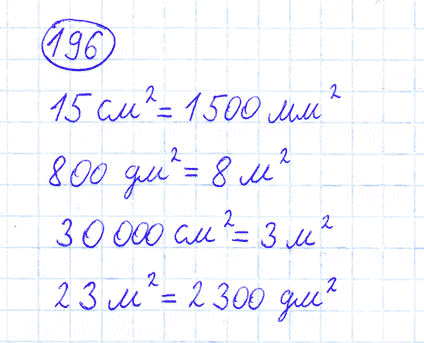 196
15 см² = 1500 мм²
800 дм² = 8 м²
30 000 см² = 3 м²
23 м² = 2300 дм²